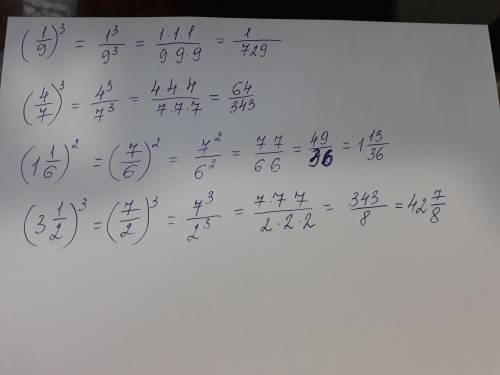 (1/9)³ = 1³/9³ = 1·1·1/9·9·9 = 1/729
(4/7)³ = 4³/7³ = 4·4·4/7·7·7 = 64/343
(1 1/6)² = (7/6)² = 7²/6² = 7·7/6·6 = 49/36 = 1 13/36
(3 1/2)³ = (7/2)³ = 7³/2³ = 7·7·7/2·2·2 = 343/8 = 42 7/8